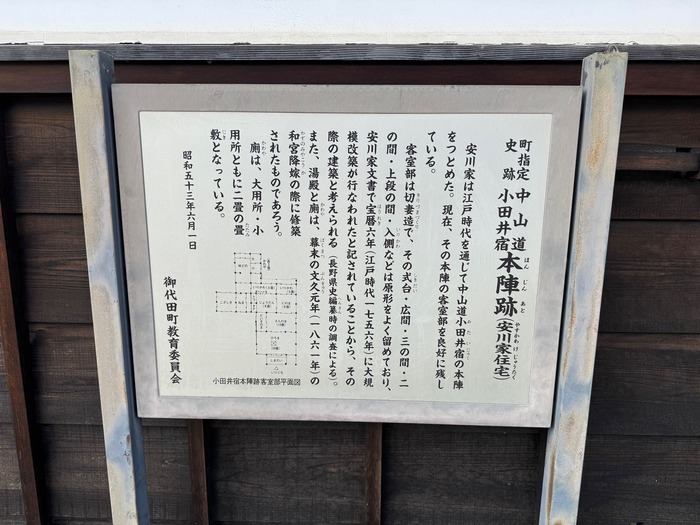 町指定
史跡
中山道
小田井宿
本陣跡(安川家住宅)
安川家は江戸時代を通じて中山道小田井宿の本陣
をつとめた。現在、その本陣の客室部を良好に残し
ている。
客室部は切妻造で、その式台・広間・三の間・二
の間・上段の間・入側などは原形をよく留めており、
安川家文書で宝暦六年(江戸時代一七五六年)に大規
模改築が行なわれたと記されていることから、その
際の建築と考えられる(長野県史編纂時の調査による)。
また、湯殿と厠は、幕末の文久元年(一八六一年)の
和宮降嫁の際に修築
されたものであろう。
厠は、大用所・小
用所ともに二畳の畳
敷となっている。
昭和五十三年六月一日
御代田町教育委員会
小田井宿本陣跡客室部平面図